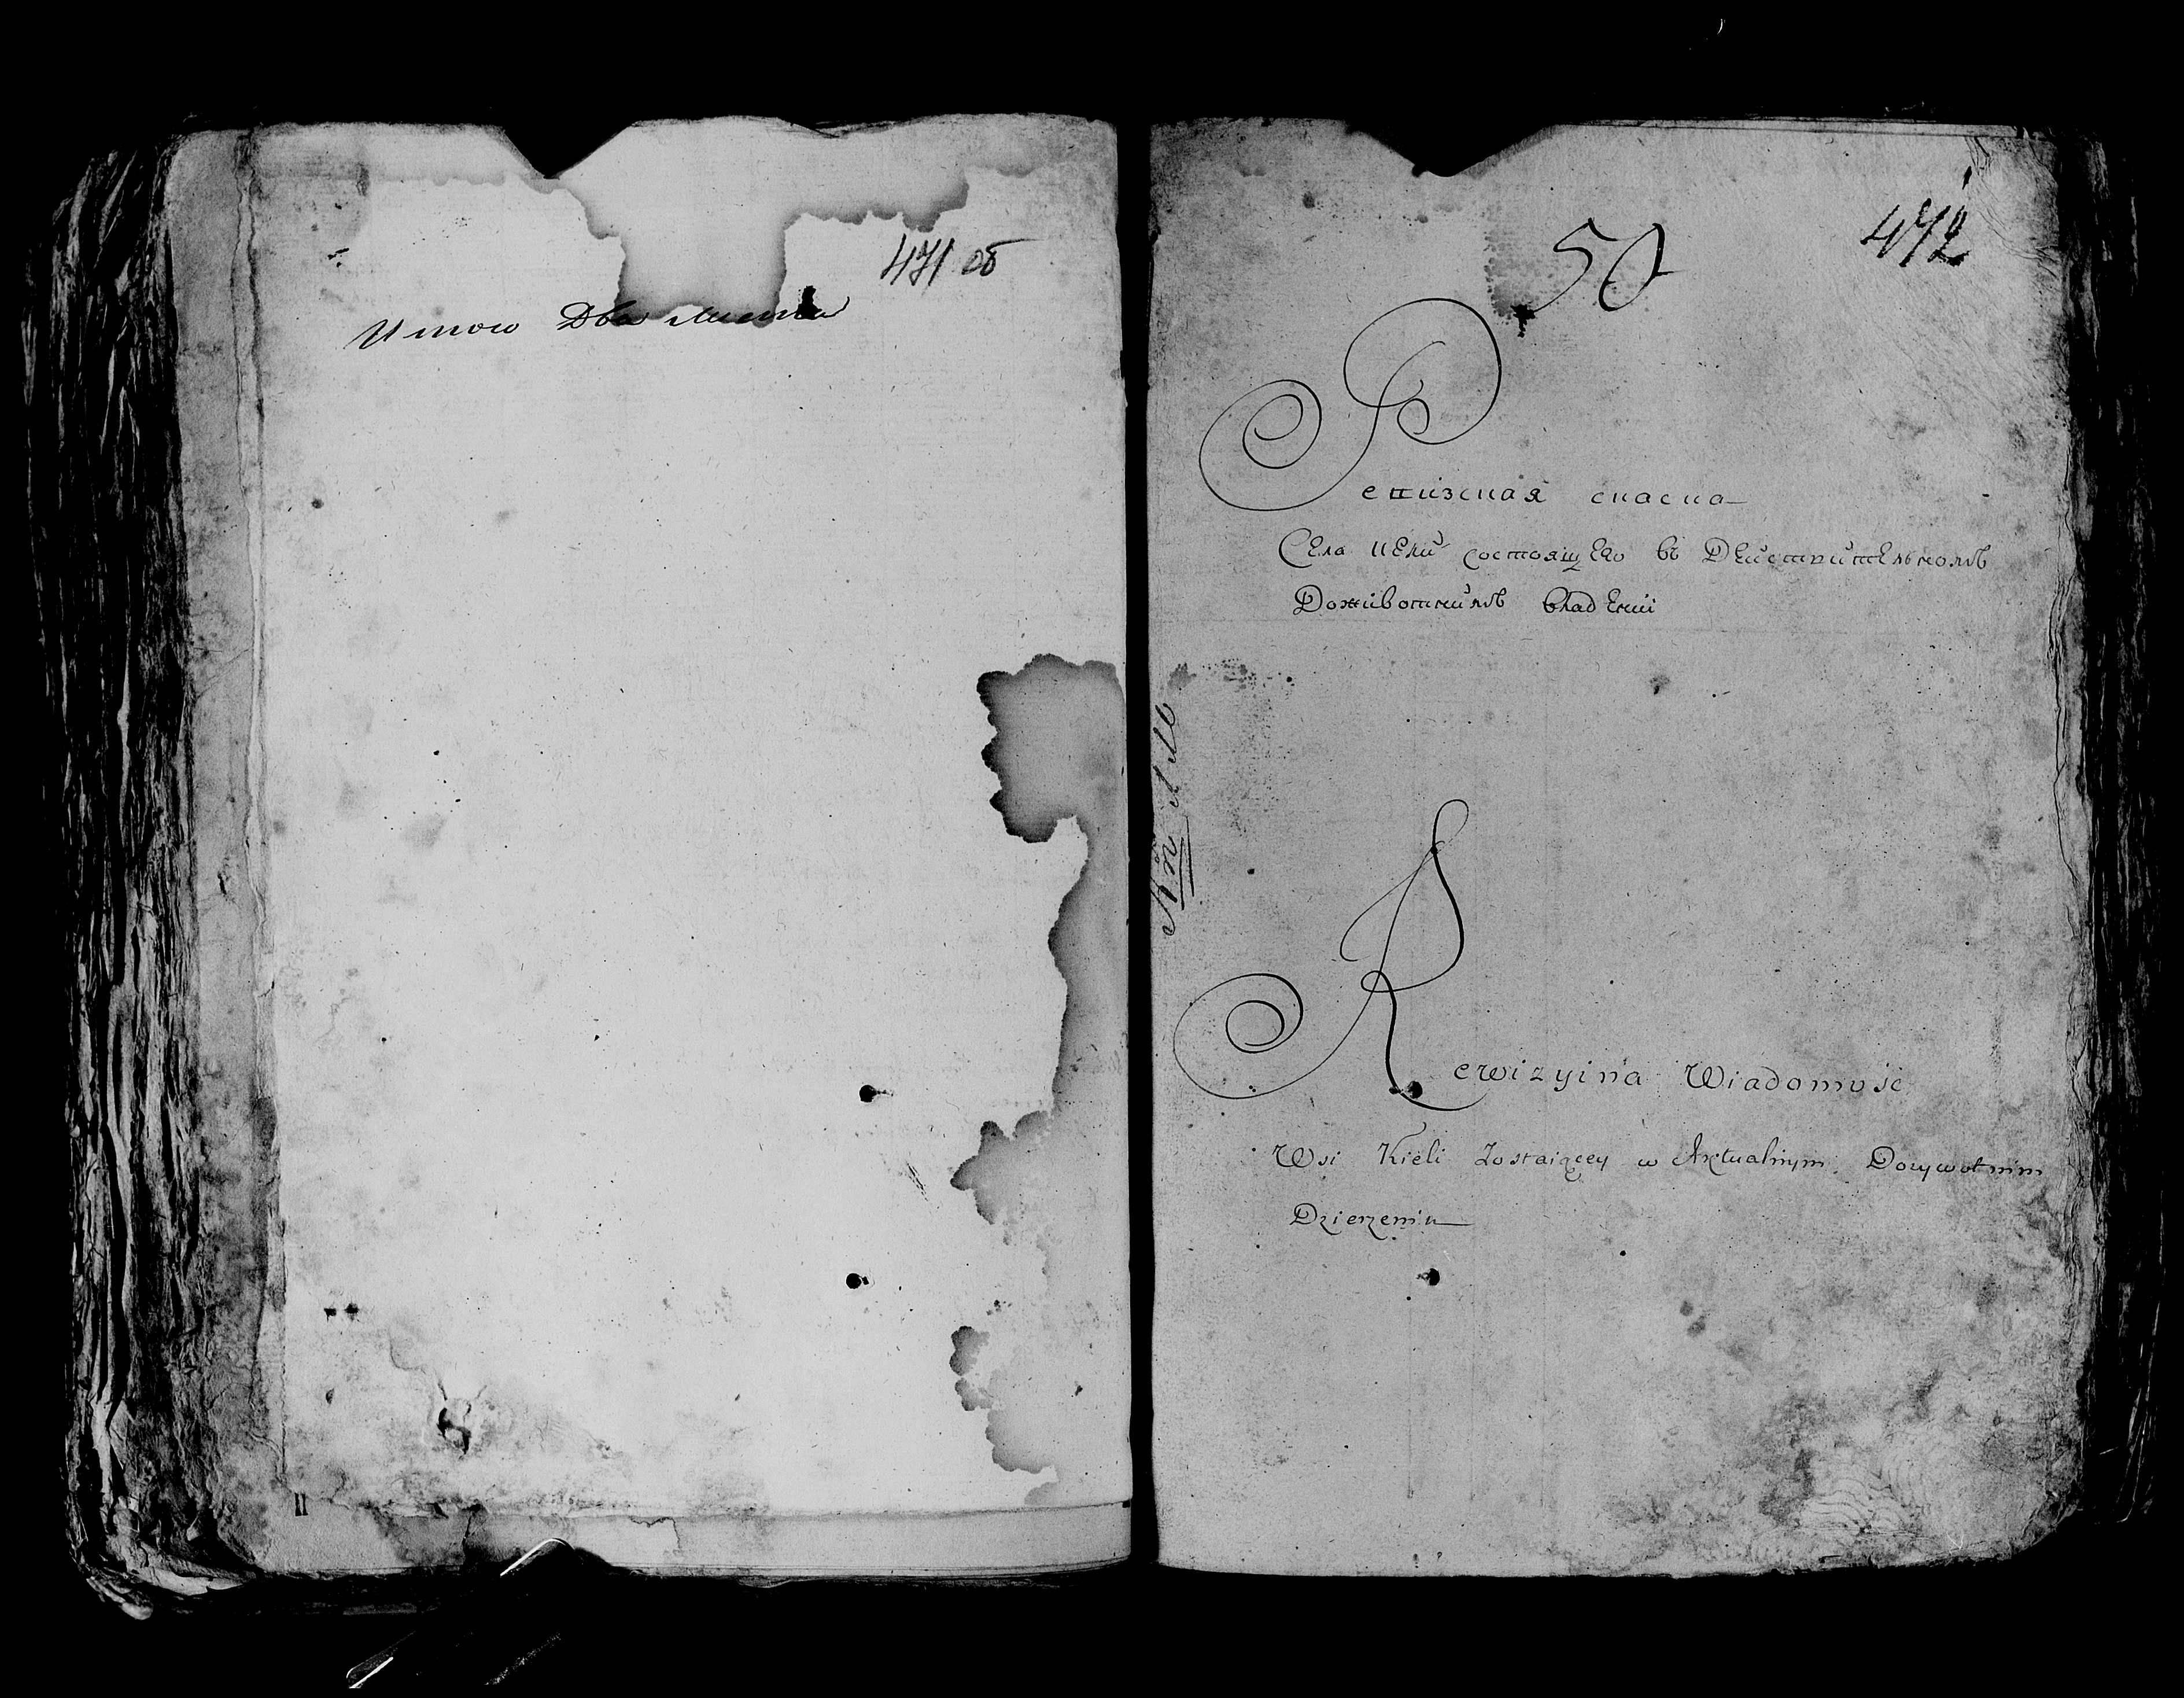 471 об
Итого два листа
472
50
Ревизская скаска
Села Кели состоящего въ Действительномъ
Доживотнимъ владении
Rewizyina Wiadomosc
Wsi Kieli Zostaiącey w Aktualnym Dozywotnim
Dzierzeniu